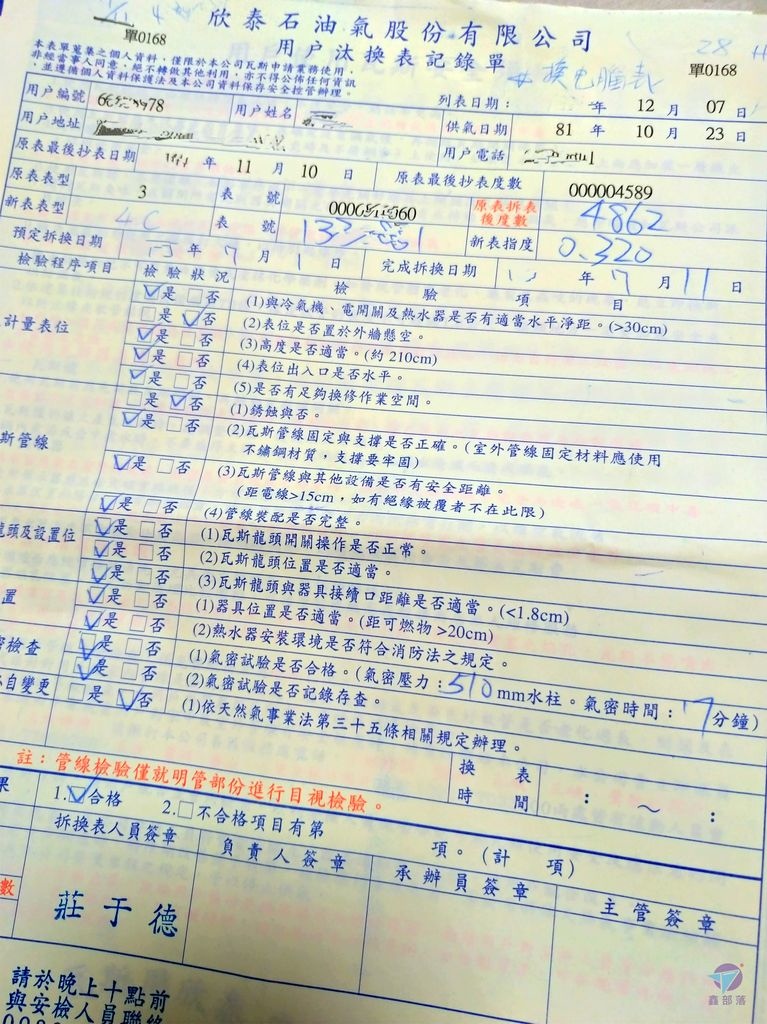 欣泰石油氣股份有限公司
單0168
用户汰換表記錄單
單0168
28
換電腦表
本表單蒐集之個人資料，僅限於本公司瓦斯申請業務使用，
非經當事人同意，絕不轉做其他利用，亦不得公佈任何資訊
，並遵循個人資料保護法及本公司資料保存安全控管辦理。
列表日期： 年 12 月 07 日
用户編號 用户姓名
供氣日期 81 年 10 月 23 日
用户地址 用户電話
原表最後抄表日期 年 11 月 10 日 原表最後抄表度數 000004589
原表表型 3 表號 原表拆表後度數 4862
新表表型 4C 表號 新表指度 0.320
預定拆換日期 年 7 月 1 日 完成拆換日期 年 7 月 11 日
檢驗程序項目 檢驗狀況 檢驗項目
計量表位
是 否 (1)與冷氣機、電開關及熱水器是否有適當水平淨距。(>30cm)
是 否 (2)表位是否置於外牆懸空。
是 否 (3)高度是否適當。(約 210cm)
是 否 (4)表位出入口是否水平。
是 否 (5)是否有足夠換修作業空間。
斯管線
是 否 (1)銹蝕與否。
是 否 (2)瓦斯管線固定與支撐是否正確。(室外管線固定材料應使用
不鏽鋼材質，支撐要牢固)
是 否 (3)瓦斯管線與其他設備是否有安全距離。
(距電線>15cm，如有絕緣被覆者不在此限)
是 否 (4)管線裝配是否完整。
龍頭及設置位
是 否 (1)瓦斯龍頭開關操作是否正常。
是 否 (2)瓦斯龍頭位置是否適當。
是 否 (3)瓦斯龍頭與器具接續口距離是否適當。(<1.8cm)
置
是 否 (1)器具位置是否適當。(距可燃物 >20cm)
是 否 (2)熱水器安裝環境是否符合消防法之規定。
密檢查
是 否 (1)氣密試驗是否合格。(氣密壓力：510mm水柱。氣密時間：7分鐘)
是 否 (2)氣密試驗是否記錄存查。
自變更
是 否 (1)依天然氣事業法第三十五條相關規定辦理。
註：管線檢驗僅就明管部份進行目視檢驗。
換表時間 ： ～ ：
果 1.合格 2.不合格項目有第 項。(計 項)
拆換表人員簽章 負責人簽章 承辦員簽章 主管簽章
數
莊于德
請於晚上十點前
與安檢人員聯絡
鑫部落